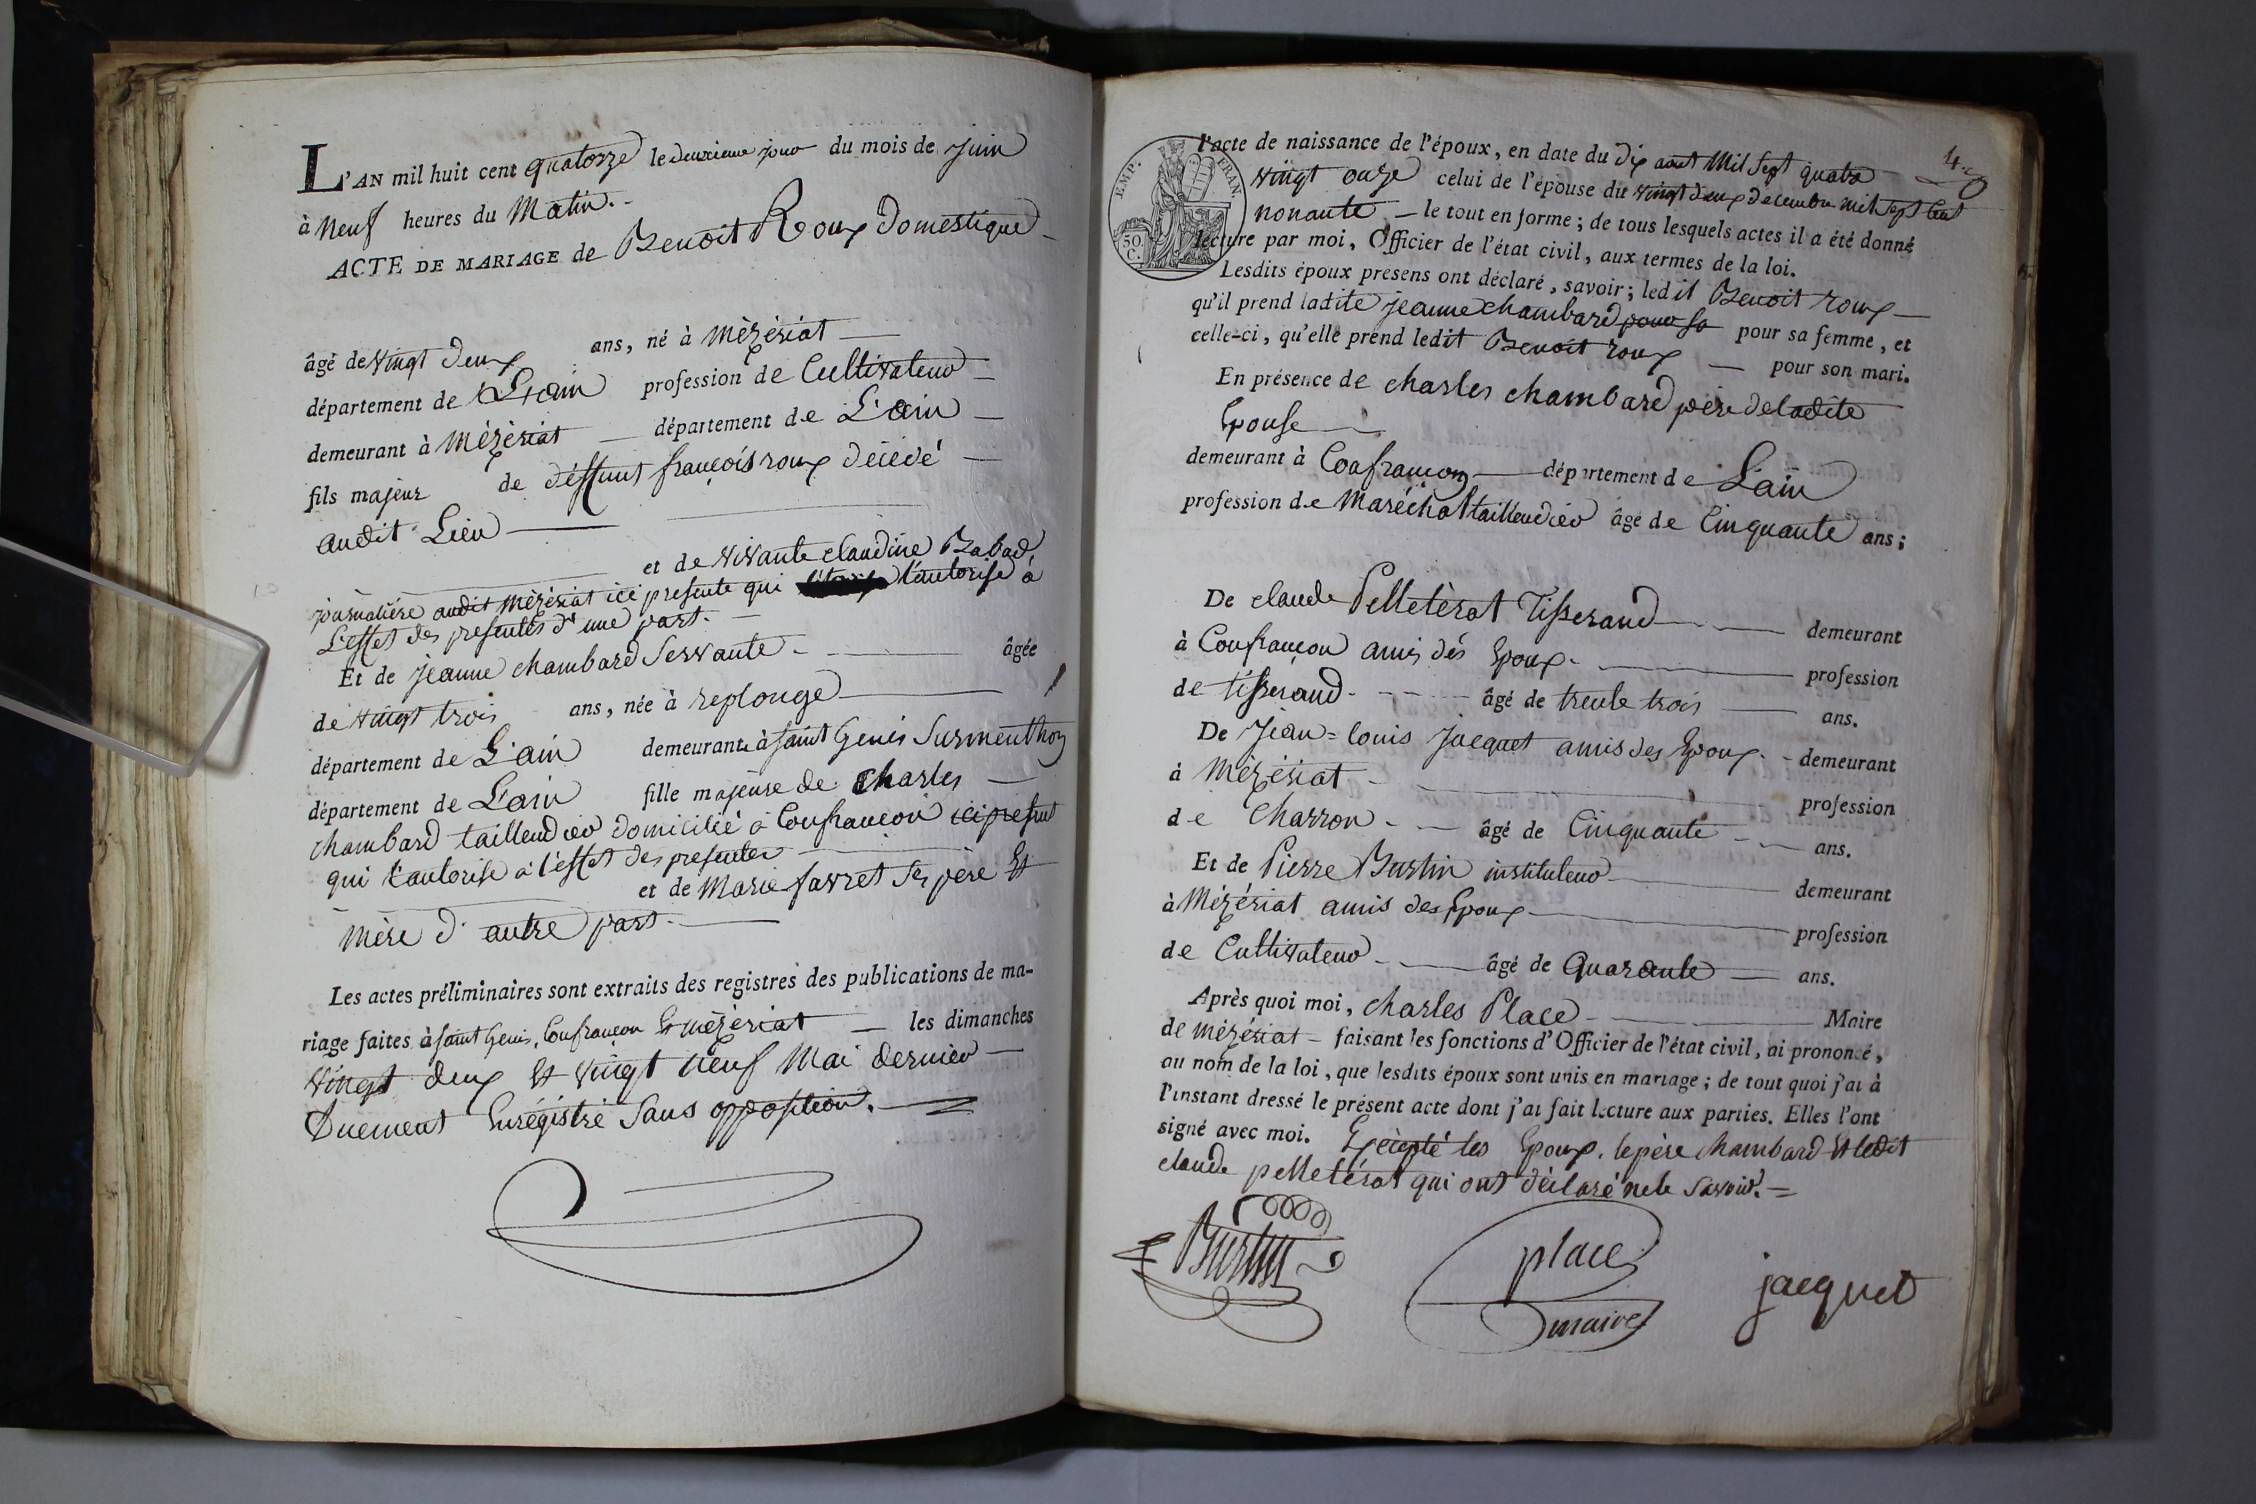 L'AN mil huit cent quatorze le deuxieme jour du mois de juin
à Neuf heures du Matin.
ACTE DE MARIAGE de Benoit Roux Domestique
âgé de vingt deux ans, né à Mézériat
département de L'ain profession de Cultivateur
demeurant à Mézériat département de L'ain
fils majeur de déffunt françois roux décédé
audit Lieu
et de vivante claudine Rabad,
journalière audit Mézériat ici presente qui l'autorise à
L'effet des presentes d'une part.
Et de jeanne chambard Servante âgée
de vingt trois ans, née à replonge
département de L'ain demeurante à saint Genis Surmenthon
département de L'ain fille majeure de Charles
chambard taillendier domicilié à Confrançon ici present
qui l'autorise à l'effet des presentes
et de Marie favret Ses père Et
mère d'autre part.
Les actes préliminaires sont extraits des registres des publications de ma-
riage faites à saint Genis, Confrançon Et mézériat les dimanches
vingt deux Et vingt neuf Mai dernier
Duement Enrégistré Sans opposition.
4.
EMP. FRAN.
50. C.
l'acte de naissance de l'époux, en date du dix aout Mil Sept quatre
vingt onze celui de l'épouse du vingt deux decembre mil sept Cent
nonante le tout en forme; de tous lesquels actes il a été donné
lecture par moi, Officier de l'état civil, aux termes de la loi.
Lesdits époux présens ont déclaré, savoir; ledit Benoit roux
qu'il prend ladite jeanne chambard pour sa pour sa femme, et
celle-ci, qu'elle prend ledit Benoit roux pour son mari.
En présence de charles chambard père de ladite
Epouse
demeurant à Confrançon département de L'ain
profession de Maréchal taillendier âgé de Cinquante ans;
De claude Pelleterat Tisserand demeurant
à Confrançon amis des Epoux profession
de tisserand âgé de trente trois ans.
De Jean=louis Jacquet amis des Epoux demeurant
à Mézériat profession
de Charron âgé de Cinquante ans.
Et de Pierre Burtin instituteur demeurant
à Mézériat amis des Epoux profession
de Cultivateur âgé de Quarante ans.
Après quoi moi, charles Place Maire
de mézériat faisant les fonctions d'Officier de l'état civil, ai prononcé,
au nom de la loi, que lesdits époux sont unis en mariage; de tout quoi j'ai à
l'instant dressé le présent acte dont j'ai fait lecture aux parties. Elles l'ont
signé avec moi. Excepté les Epoux, le père chambard Et ledit
claude pelleterat qui ont déclaré ne le savoir.
Burtin place jacquet
maire